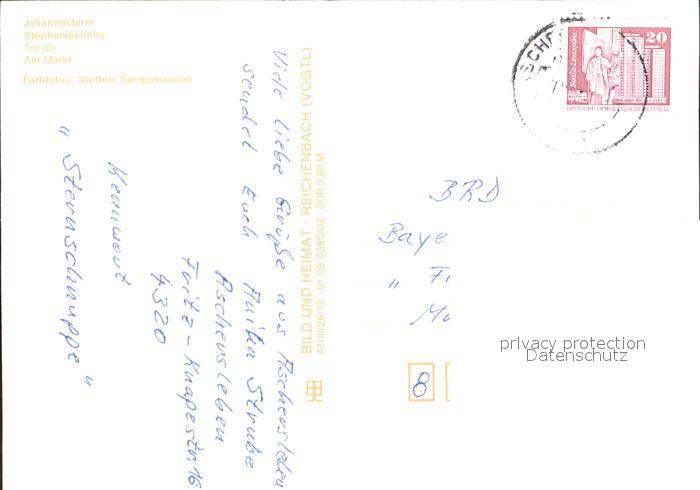 Johannesturm
Stephaniekirche
Tie (2)
Am Markt
Farbfotos: Steffen, Sangerhausen
Viele liebe Grüße aus Aschersleben
sendet Euch Anika Strube
Aschersleben
Fritz-Knapestr. 16
4320
Kennwort
„Sternschnuppe"
BILD UND HEIMAT · REICHENBACH (VOGTL)
A1/III/26/13 · 01 08 0395/02 · DDR 0,20 M
Berlin-Leninplatz
20
DEUTSCHE DEMOKRATISCHE REPUBLIK
BRD
Baye
„ Fi
8
privacy protection
Datenschutz